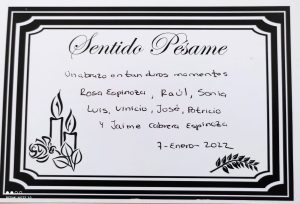 Sentido Pésame
Un abrazo en tan duros momentos
Rosa Espinoza, Raúl, Sonia
Luis, Vinicio, José, Patricio
y Jaime Cabrera Espinoza
7-Enero-2022